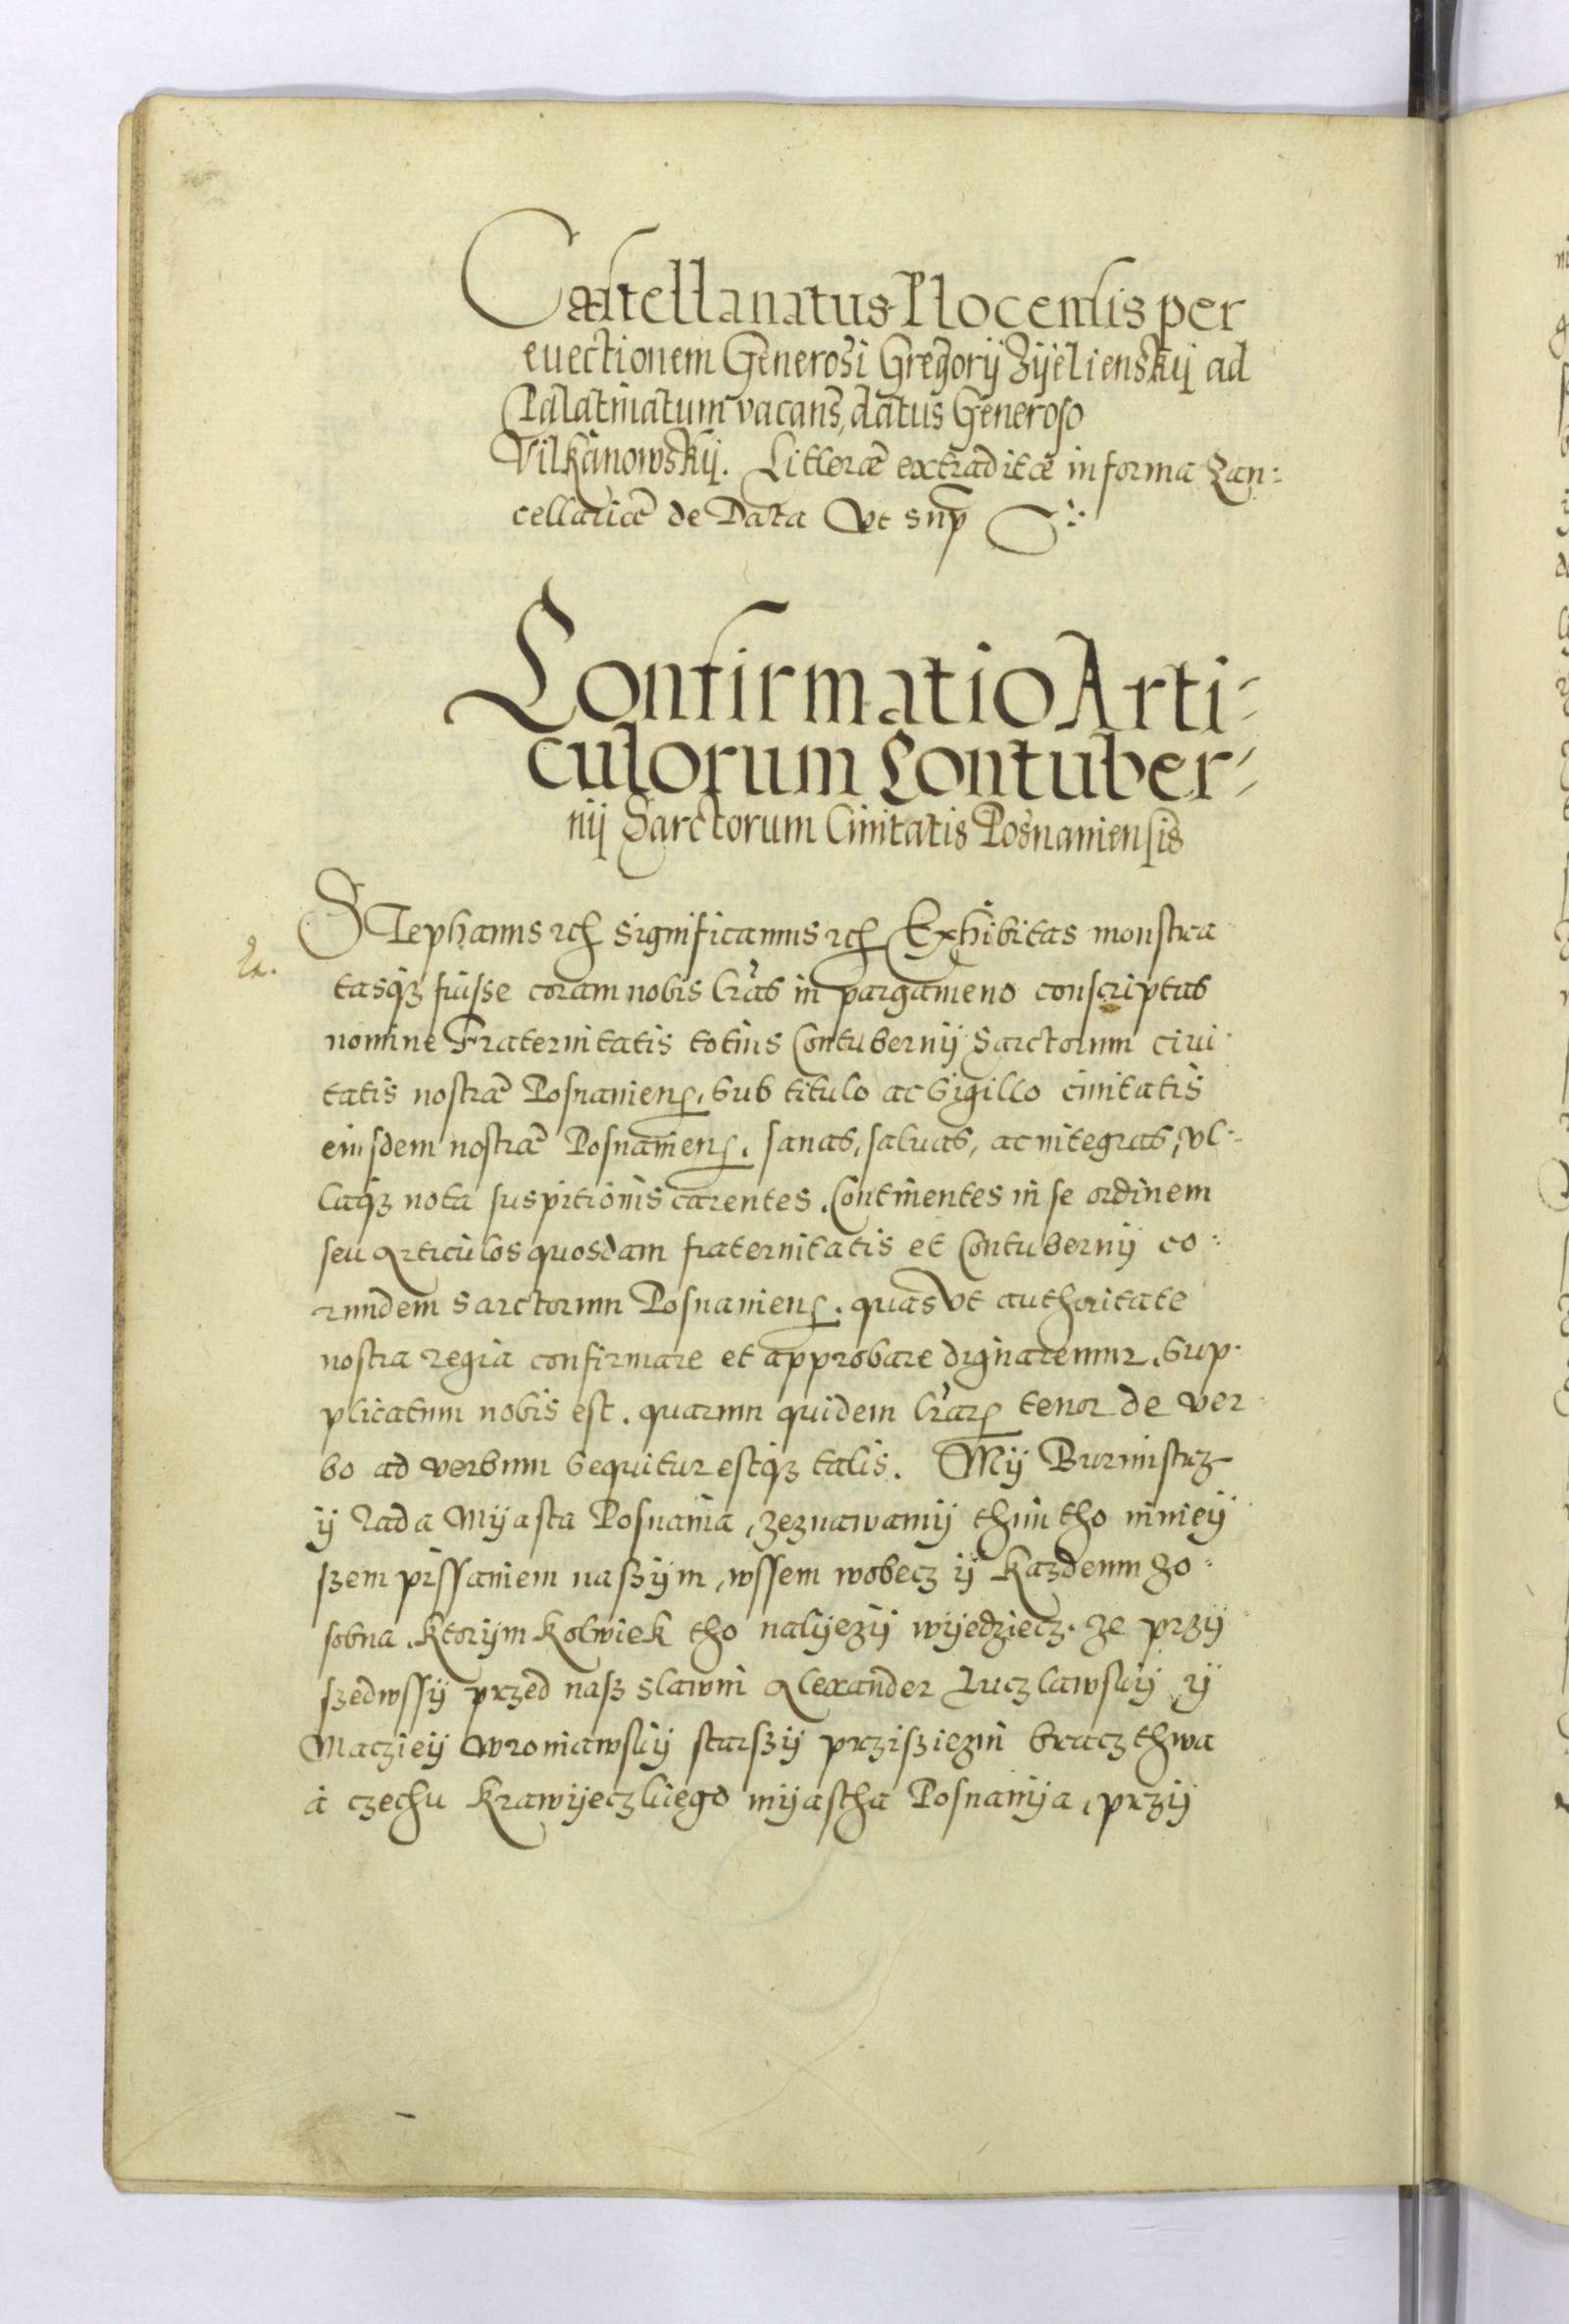 Castellanatus Plocensis per
euectionem Generosi Gregorij Zijelienskij ad
Palatinatum vacans, datus Generoso
Vilkanowskij. Litteræ extraditæ in forma Can:
cellariæ de Data Vt sup
Confirmatio Arti-
culorum Contuber-
nij Sarctorum Ciuitatis Posnaniensis
STephanus etc Significamus etc Exhibitas monstra
tasq3 fuisse coram nobis Lrãs in pargameno conscriptas
nomine Fraternitatis totius Contubernij Sarctorum ciui
tatis nostræ Posnaniens. sub titulo ac Sigillo ciuitatis
eiusdem nostræ Posnaniens. sanas, saluas, ac integras, vl-
laq3 nota suspitionis carentes. Continentes in se ordinem
seu Articulos quosdam fraternitatis et Contubernij eo:
rundem Sarctorum Posnaniens. quas vt authoritate
nostra regia confirmare et approbare dignaremur, Sup-
plicatum nobis est. quarum quidem Lrãrum tenor de ver
bo ad verbum sequitur estq3 talis. Mÿ Burmistrz
ÿ Rada Mÿasta Posnania, zeznawamÿ thim tho ninieÿ
szem pissaniem naszÿm, wssem wobecz ÿ Kazdemu zo:
sobna. Ktorÿm Kolwiek tho nalÿezÿ wÿedziecz. ze przÿ
szedwssÿ przed nasz slawni Alexander Luczlawskÿ ÿ
Macziejÿ Wroniawskÿ starszÿ prziszieznī braczthwa
à czechu Krawÿeczkiego mÿastha Posnanÿa, przÿ